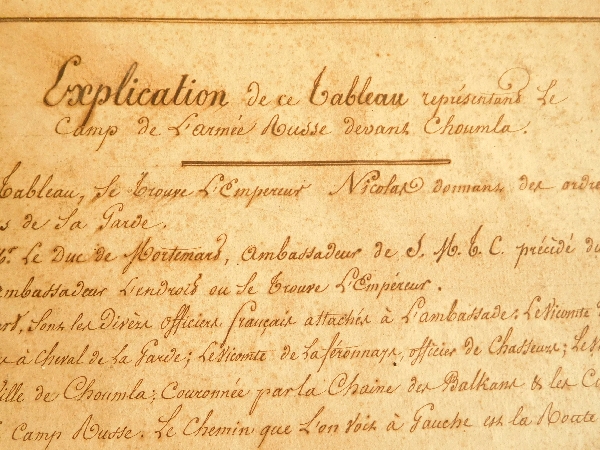 Explication de ce Tableau représentant Le
Camp de L'armée Russe devant Choumla.
Tableau, se Trouve L'Empereur Nicolas donnant des ordre
s de Sa Garde.
Mr. Le Duc de Mortemart, ambassadeur de S. M. T. C. précédé du
ambassadeur L'endroit ou se Trouve L'Empéreur.
sont les Divers officiers français attachés à L'ambassade; Le Vicomte
à Cheval de La Garde; Le Vicomte de La féronnays, officier de Chasseurs; Le
ville de Choumla, Couronnée par la Chaine des Balkans & les
Camp Russe. Le Chemin que L'on Voit à Gauche est la Route